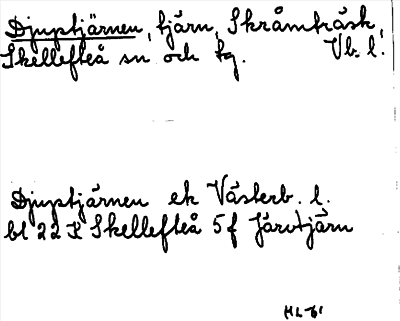 Djuptjärnen, tjärn, Skråmträsk,
Skellefteå sn och tg. Vb. l.
Djuptjärnen ek Västerb. l.
bl 22 K Skellefteå 5 f Järvtjärn